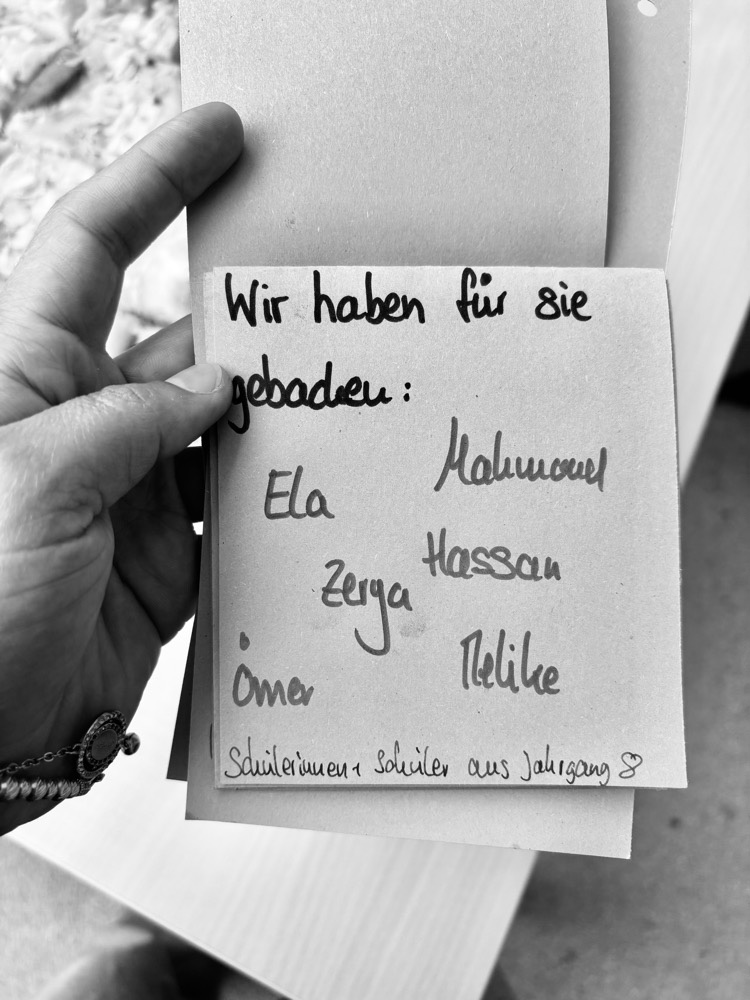 Wir haben für sie
gebacken:
Mahmoud
Ela
Hassan
Zerya
Melike
Ömer
Schülerinnen + Schüler aus Jahrgang 8